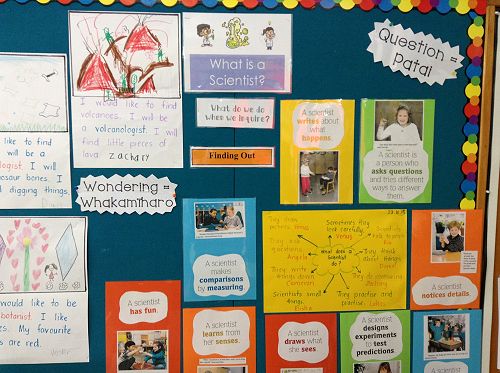 What is a
Scientist?
Question =
Patai
What do we do
when we inquire?
Finding Out
I would like to find
volcanoes. I will be
a volcanologist. I will
find little pieces of
lava. Zachary
like to find
will be a
ologist. I will
saur bones. I
digging things.
Wondering =
Whakamiharo
A scientist
writes about
what
happens.
A scientist is
a person who
asks questions
and tries different
ways to answer
them.
A scientist
makes
comparisons
by measuring.
They draw
Sometimes they
look carefully.
Venus
They ask
questions.
Angela
What does a
Scientist
do?
They think
about things.
They write
things down.
Cameron
Scientists smell
things.
They practise and
practise.
A scientist
notices details.
would like to be
botanist. I like
My favourite
are red.
A scientist
has fun.
A scientist
learns from
her senses.
A scientist
draws what
she sees.
A scientist
designs
experiments
to test
predictions.